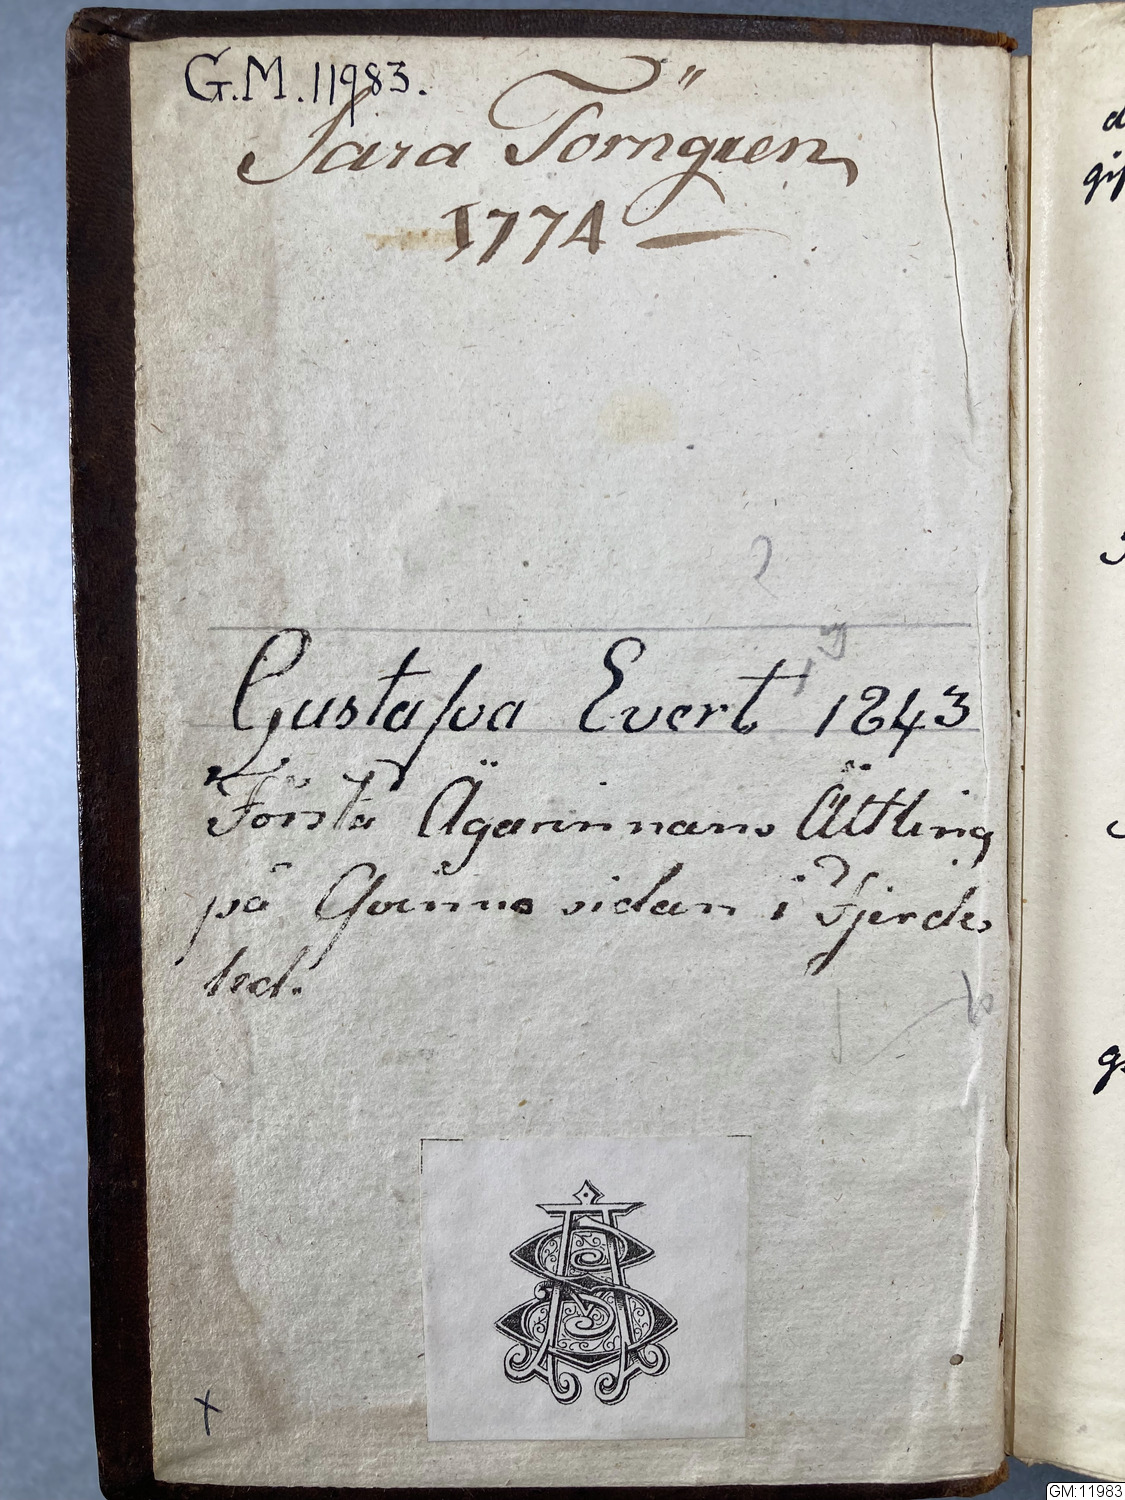 G.M. 11983.
Sara Törngren
1774
Gustafva Evert 1843
Första Ägarinnans Ättling
på qvinno sidan i Fjerde
led.
GM:11983